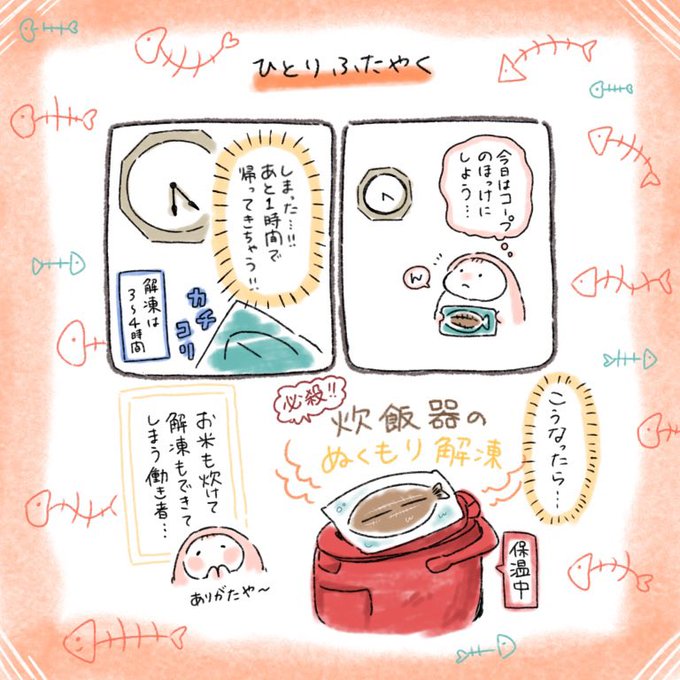 ひとりふたやく
今日はコープ
のほっけに
しよう…
ん
しまった…!!
あと1時間で
帰ってきちゃう!!
カチコリ
解凍は
3~4時間
こうなったら…
必殺!!
炊飯器の
ぬくもり解凍
保温中
お米も炊けて
解凍もできて
しまう働き者…
ありがたや~